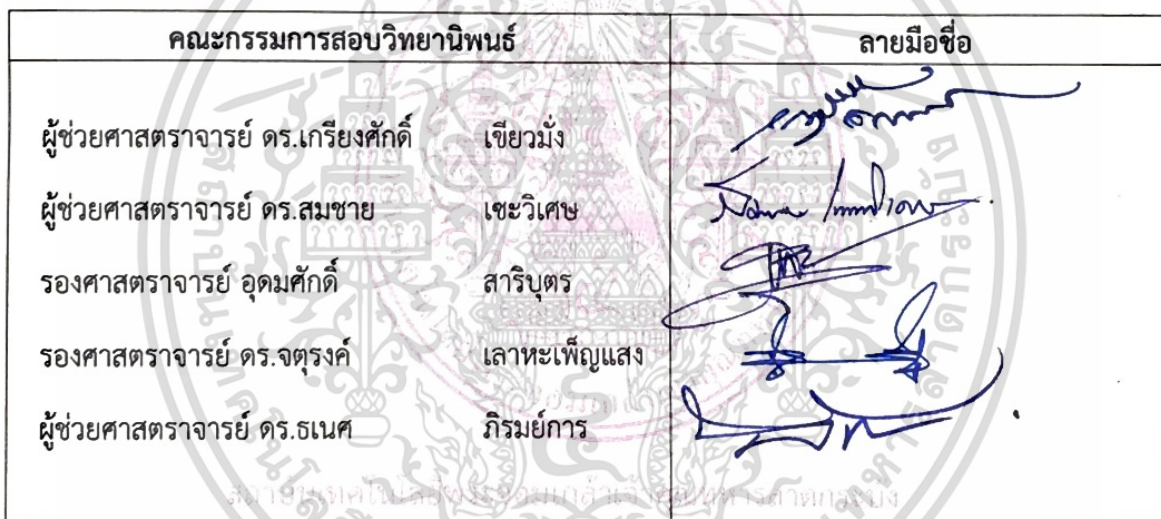 คณะกรรมการสอบวิทยานิพนธ์ ลายมือชื่อ
ผู้ช่วยศาสตราจารย์ ดร.เกรียงศักดิ์ เขียวมั่ง
ผู้ช่วยศาสตราจารย์ ดร.สมชาย เซะวิเศษ
รองศาสตราจารย์ อุดมศักดิ์ สาริบุตร
รองศาสตราจารย์ ดร.จตุรงค์ เลาหะเพ็ญแสง
ผู้ช่วยศาสตราจารย์ ดร.ธเนศ ภิรมย์การ
สถาบันเทคโนโลยีพระจอมเกล้าเจ้าคุณทหารลาดกระบัง